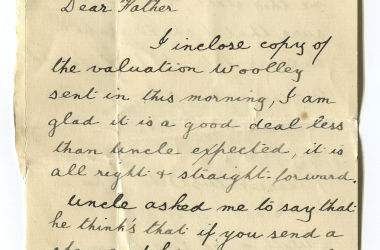 Dear Father
I inclose copy of
the valuation Woolley
sent in this morning, I am
glad it is a good deal less
than Uncle expected, it is
all right & straight-forward.
Uncle asked me to say that
he think's that if you send a